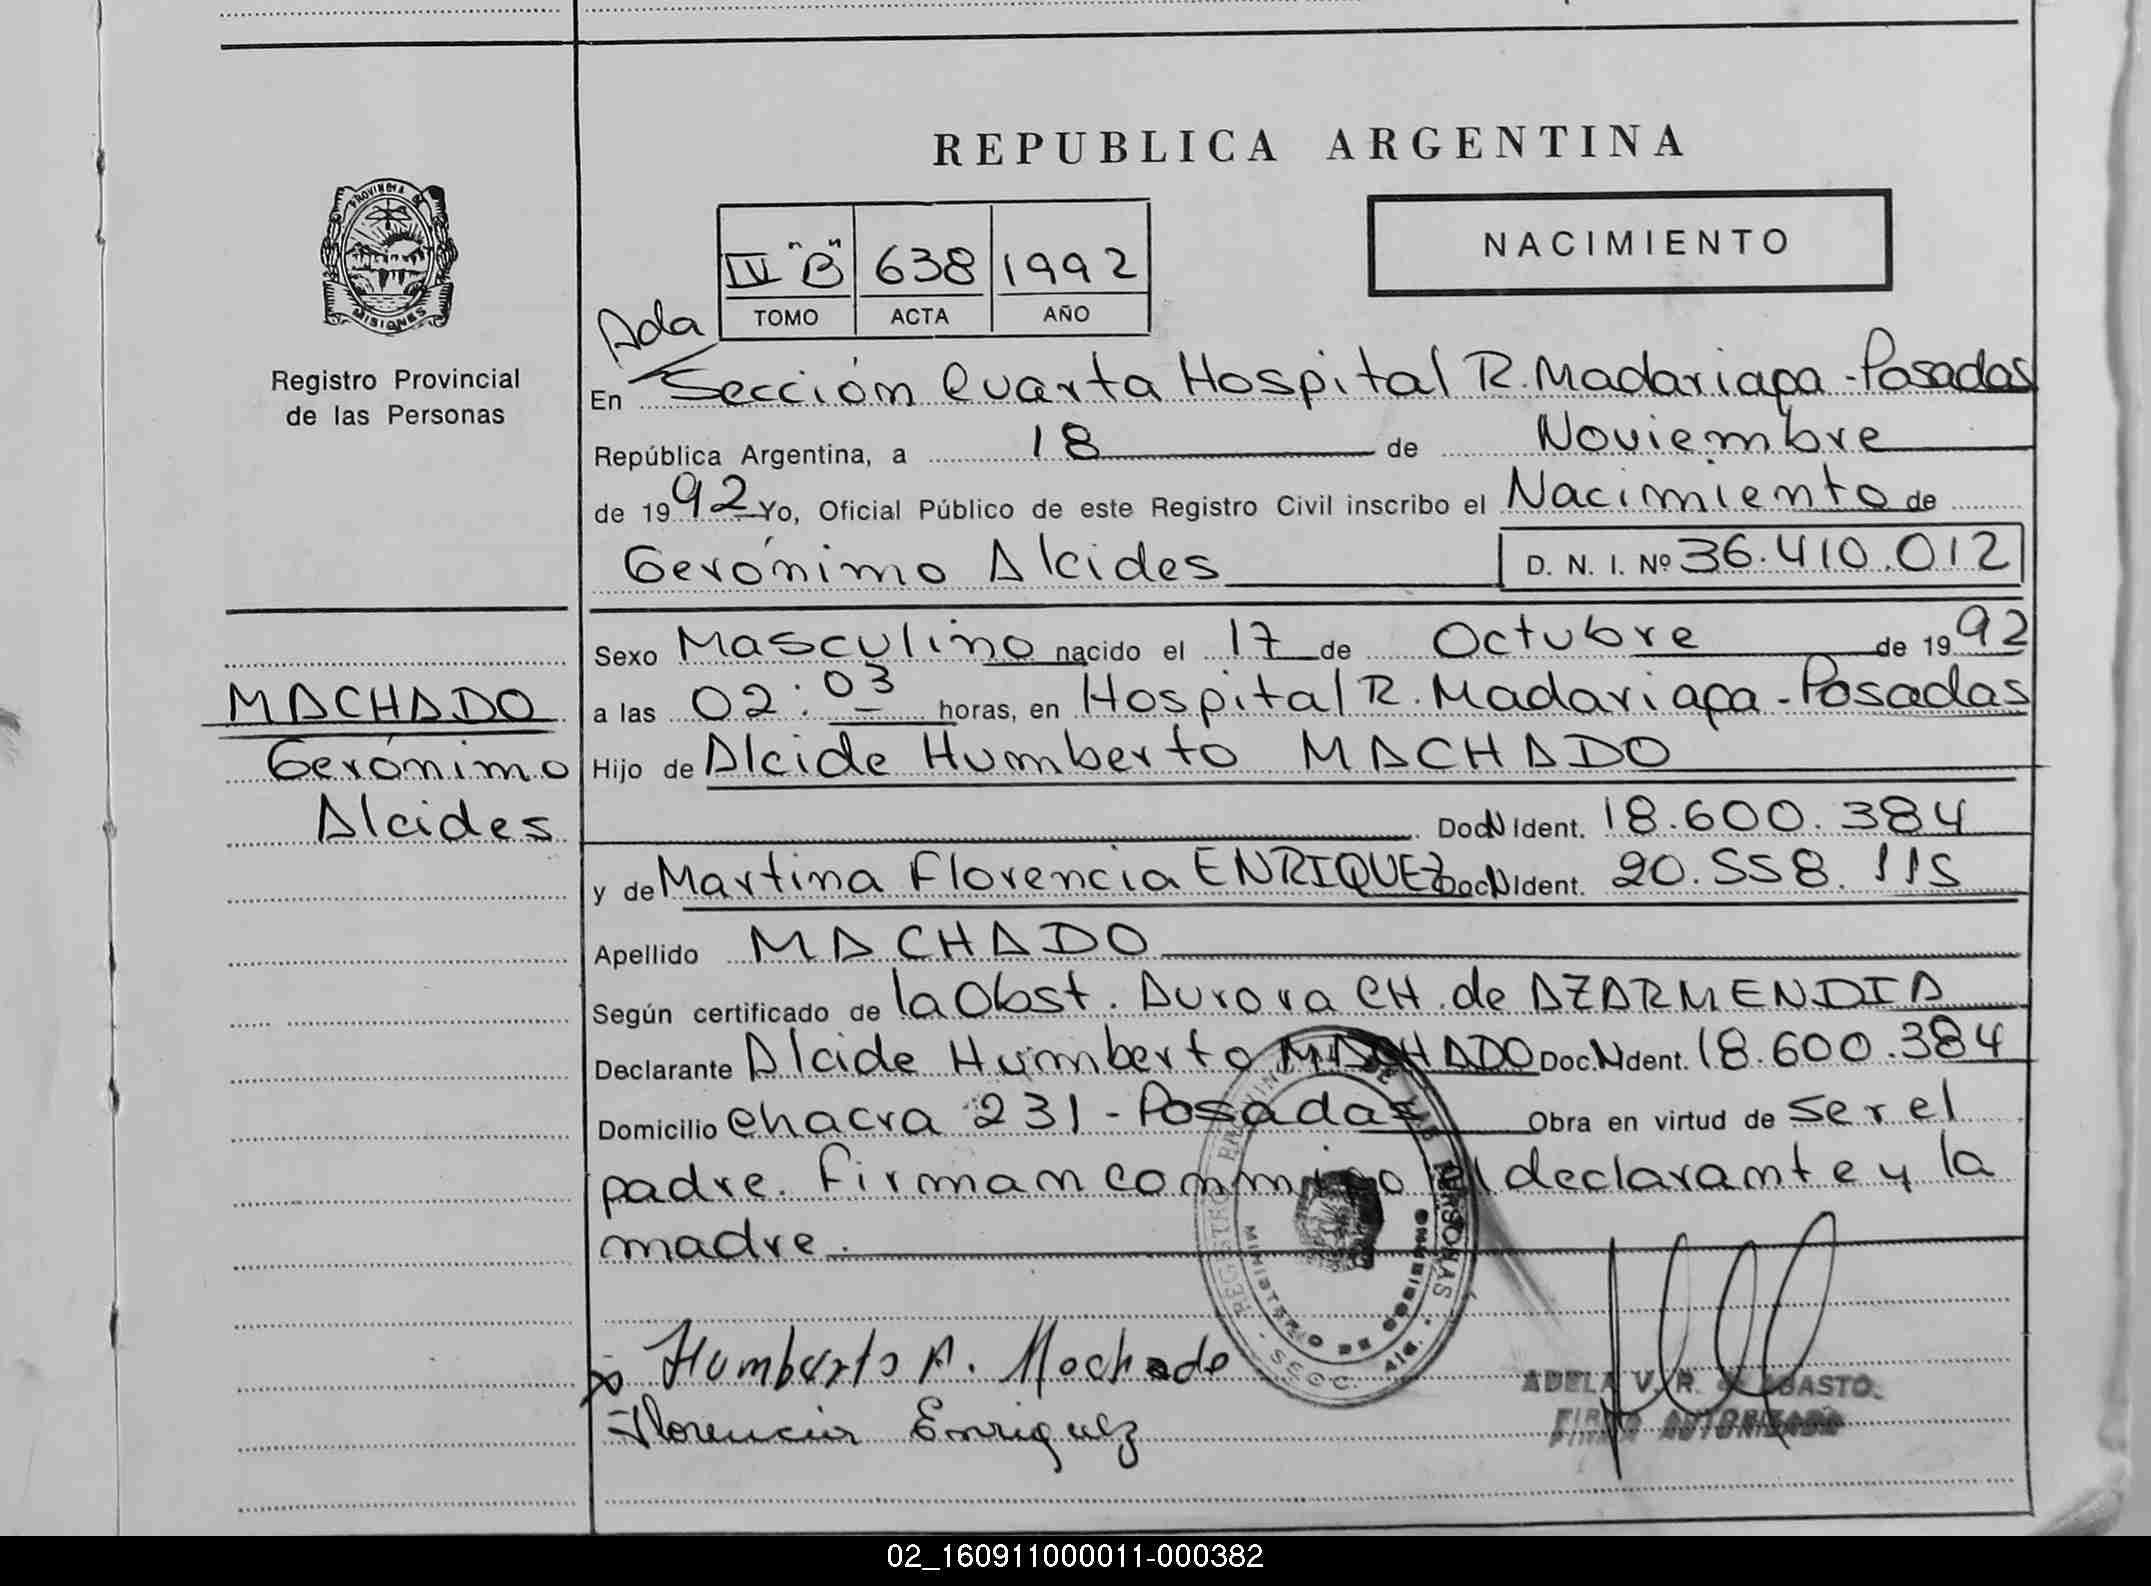 REPUBLICA ARGENTINA
NACIMIENTO
IV "B" 638 1992
TOMO ACTA AÑO
PROVINCIA DE
MISIONES
Registro Provincial
de las Personas
Ada
En Sección Cuarta Hospital R. Madariaga - Posadas
República Argentina, a 18 de Noviembre
de 1992 Yo, Oficial Público de este Registro Civil inscribo el Nacimiento de
Gerónimo Alcides D. N. I. Nº 36.410.012
Sexo Masculino nacido el 17 de Octubre de 1992
MACHADO
Gerónimo
Alcides
a las 02:03 horas, en Hospital R. Madariaga - Posadas
Hijo de Alcide Humberto MACHADO
Doc N Ident. 18.600.384
y de Martina Florencia ENRIQUEZ Doc N Ident. 20.558.115
Apellido MACHADO
Según certificado de la Obst. Aurora CH. de AZARMENDIA
Declarante Alcide Humberto MACHADO Doc. N Ident. 18.600.384
Domicilio chacra 231 - Posadas Obra en virtud de ser el
padre. Firman conmigo el declarante y la
madre.
REGISTRO PROVINCIAL DE LAS PERSONAS
MINISTERIO DE GOBIERNO
Humberto A. Machado
Florencia Enriquez
ADELA V. R.
FIRMA AUTORIZADA
02_160911000011-000382